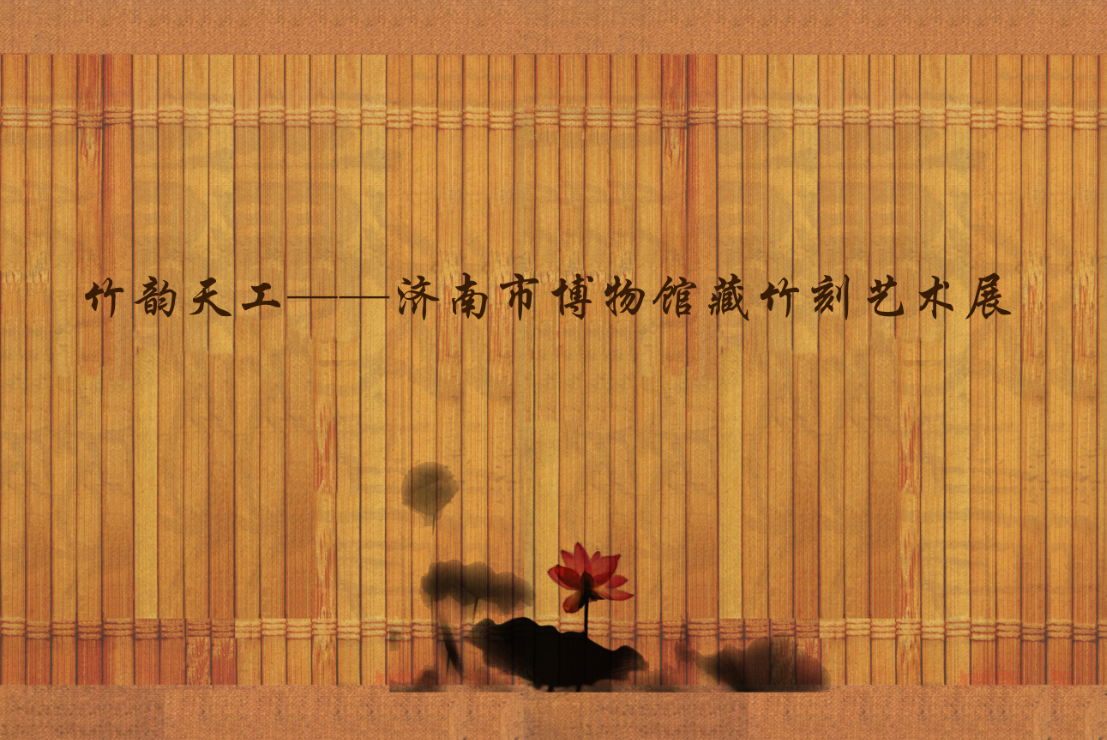 竹韵天工——济南市博物馆藏竹刻艺术展